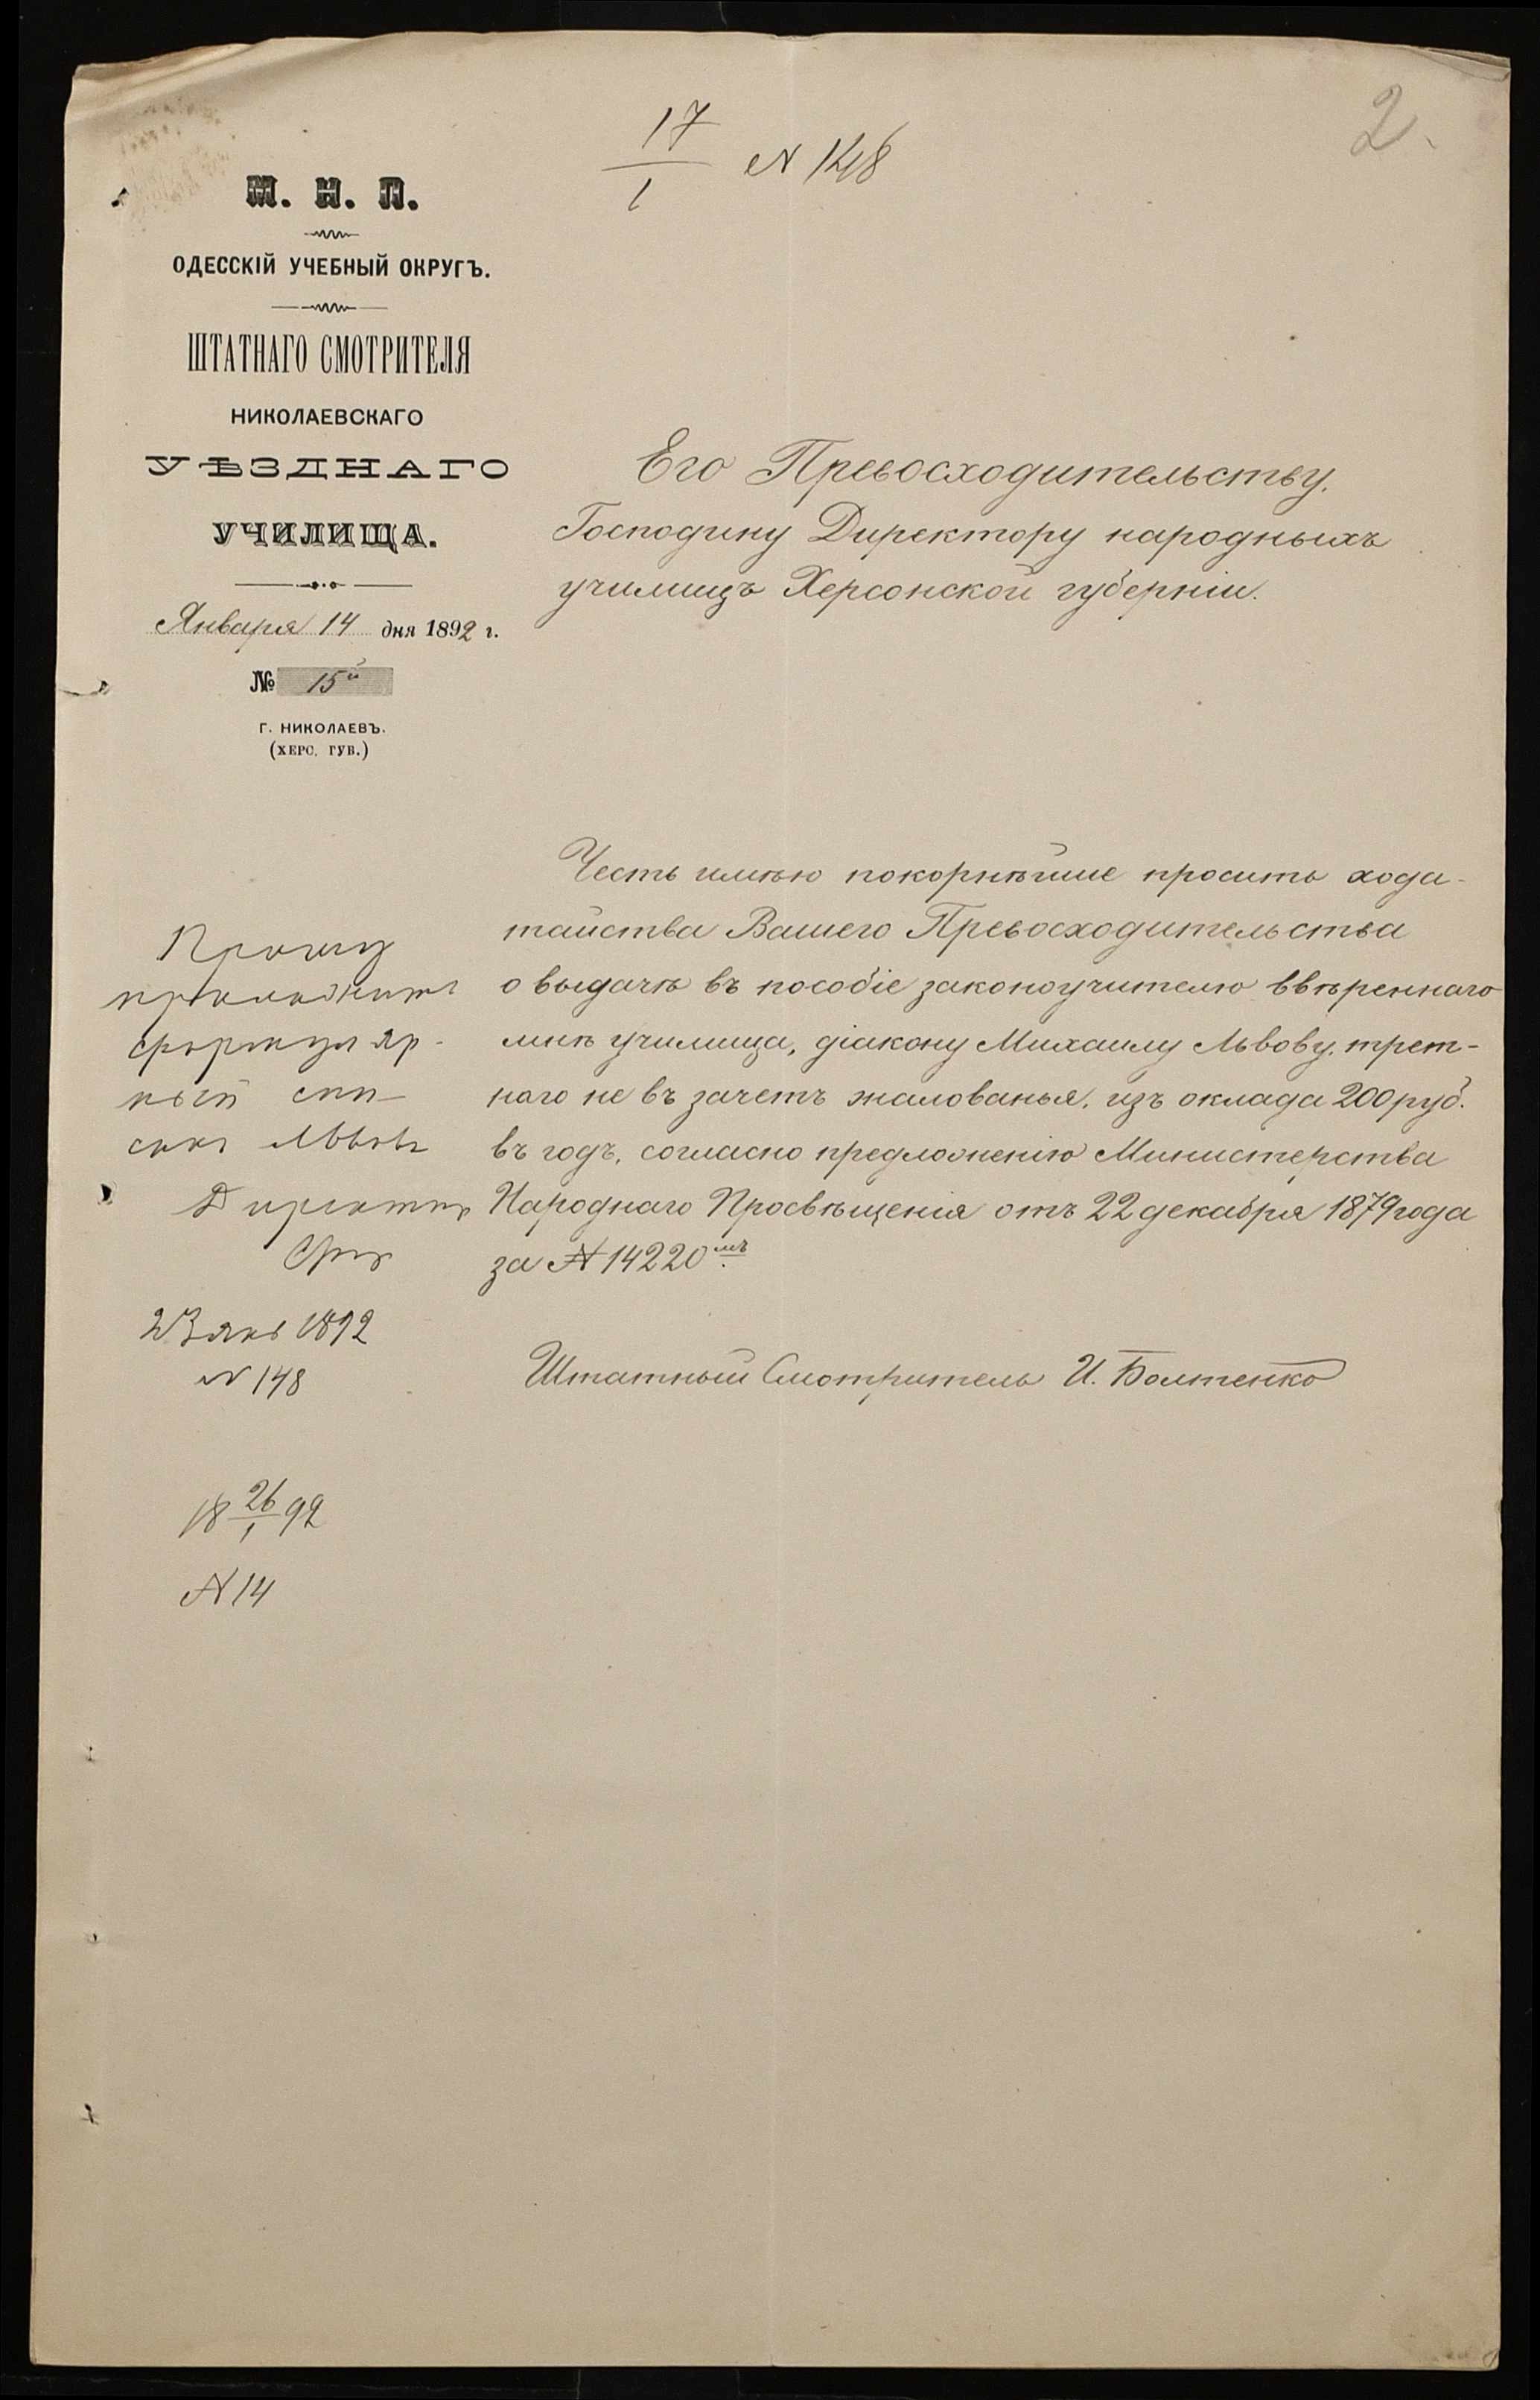 2.
17
1
N 148
М. Н. П.
ОДЕССКІЙ УЧЕБНЫЙ ОКРУГЪ.
ШТАТНАГО СМОТРИТЕЛЯ
НИКОЛАЕВСКАГО
УѢЗДНАГО
УЧИЛИЩА.
Января 14 дня 1892 г.
№ 15й
Г. НИКОЛАЕВЪ.
(ХЕРС. ГУБ.)
Его Превосходительству,
Господину Директору народныхъ
училищъ Херсонской губерніи.
Честь имѣю покорнѣйше просить хода-
тайства Вашего Превосходительства
о выдачѣ въ пособіе законоучителю ввѣреннаго
мнѣ училища, діакону Михаилу Львову, трет-
наго не въ зачетъ жалованья, изъ оклада 200 руб.
въ годъ, согласно предложенію Министерства
Народнаго Просвѣщенія отъ 22 декабря 1879 года
за № 14220мъ
Штатный Смотритель И. Болтенко
Прошу
приложить
формуляр-
ный спи-
сокъ Львова
Директор
23 янв 1892
N 148
18 26/1 92
N 14